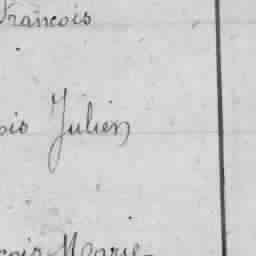 François
ois Julien
çois Marie-